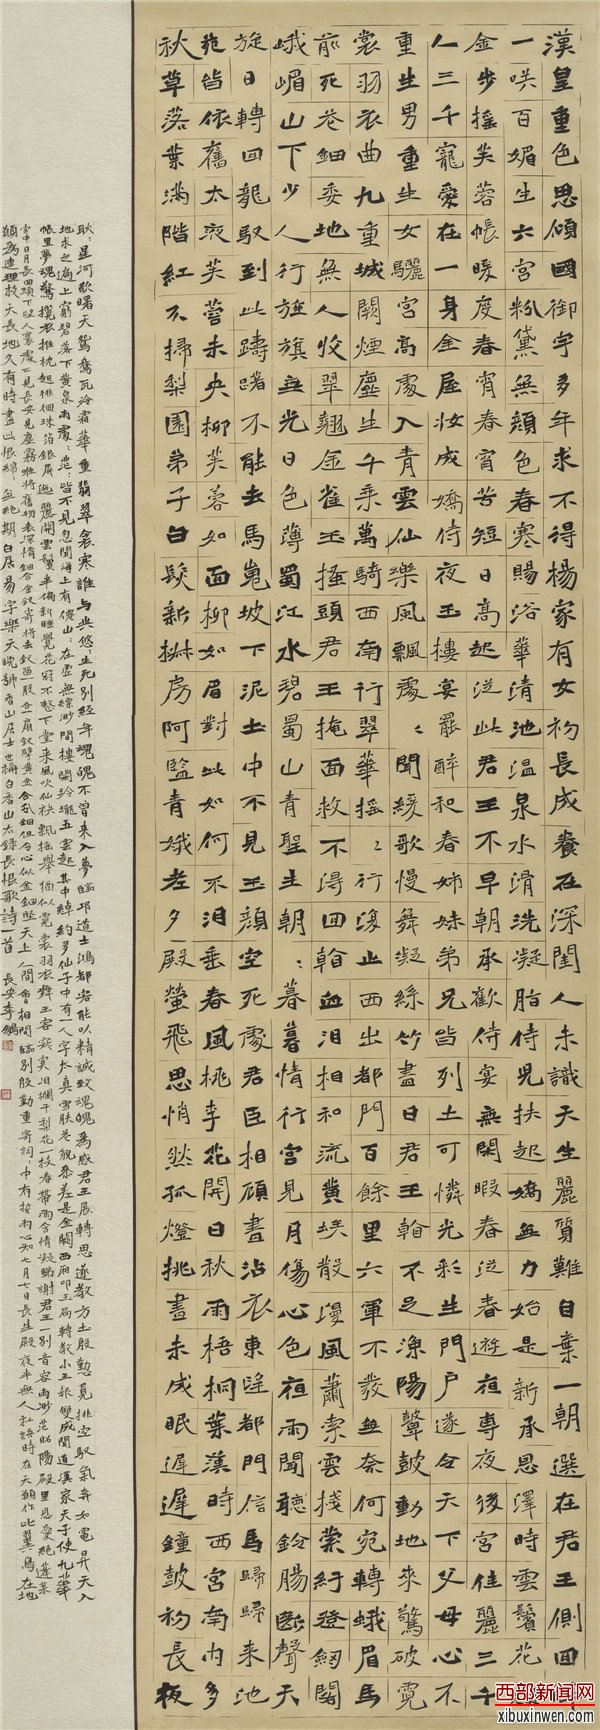 漢皇重色思傾國御宇多年求不得楊家有女初長成養在深閨人未識天生麗質難自棄一朝選在君王側回
一咲百媚生六宮粉黛無顏色春寒賜浴華清池溫泉水滑洗凝脂侍兒扶起嬌無力始是新承恩澤時雲鬢花
金步摇芙蓉帳暖度春宵春宵苦短日高起從此君王不早朝承歡侍宴無閑暇春從春遊夜專夜後宮佳麗三千
人三千寵愛在一身金屋妝成嬌侍夜玉樓宴罷醉和春姊妹弟兄皆列土可憐光彩生門戶遂令天下父母心不
重生男重生女驪宮高處入青雲仙樂風飄處〻聞緩歌慢舞凝絲竹盡日君王看不足漁陽鼙鼓動地來驚破霓
裳羽衣曲九重城闕煙塵生千乘萬騎西南行翠華摇〻行復止西出都門百餘里六軍不發無奈何宛轉蛾眉馬
前死花鈿委地無人收翠翹金雀玉搔頭君王掩面救不得回看血淚相和流黃埃散漫風蕭索雲棧縈紆登劍閣
峨嵋山下少人行旌旗無光日色薄蜀江水碧蜀山青聖主朝〻暮暮情行宮見月傷心色夜雨聞聽鈴腸斷聲天
旋日轉回龍馭到此躊躇不能去馬嵬坡下泥土中不見玉顏空死處君臣相顧盡沾衣東望都門信馬歸歸來池
苑皆依舊太液芙蓉未央柳芙蓉如面柳如眉對此如何不淚垂春風桃李花開日秋雨梧桐葉時西宮南内多
秋草落葉滿階紅不掃梨園弟子白髮新椒房阿監青娥老夕殿螢飛思悄然孤燈挑盡未成眠遲遲鐘鼓初長夜
耿〻星河欲曙天鴛鴦瓦冷霜華重翡翠衾寒誰與共悠〻生死別經年魂魄不曾來入夢臨邛道士鴻都客能以精誠致魂魄為感君王展轉思遂教方士殷勤覓排空馭氣奔如電昇天入
地求之遍上窮碧落下黃泉兩處茫〻皆不見忽聞海上有僊山〻在虛無縹緲間樓閣玲瓏五雲起其中綽約多仙子中有一人字太真雪膚花貌參差是金闕西廂叩玉扃轉教小玉報雙成聞道漢家天子使九華
帳里夢魂驚攬衣推枕起徘徊珠箔銀屏迤邐開雲鬢半偏新睡覺花冠不整下堂來風吹仙袂飄颻舉猶似霓裳羽衣舞玉容寂寞淚闌干梨花一枝春帶雨含情凝睇謝君王一別音容兩渺茫昭陽殿里恩愛絕蓬萊
宮中日月長回頭下望人寰處不見長安見塵霧唯將舊物表深情鈿合金釵寄將去釵留一股合一扇釵擘黃金合分鈿但令心似金鈿堅天上人間會相見臨別殷勤重寄詞〻中有誓兩心知七月七日長生殿夜半無人私語時在天願作比翼鳥在地
願為連理枝天長地久有時盡此恨綿〻無絕期白居易字樂天晚號香山居士世稱白香山太錄長恨歌詩一首 長安李鵬
西部新闻网
xibuxinwen.com